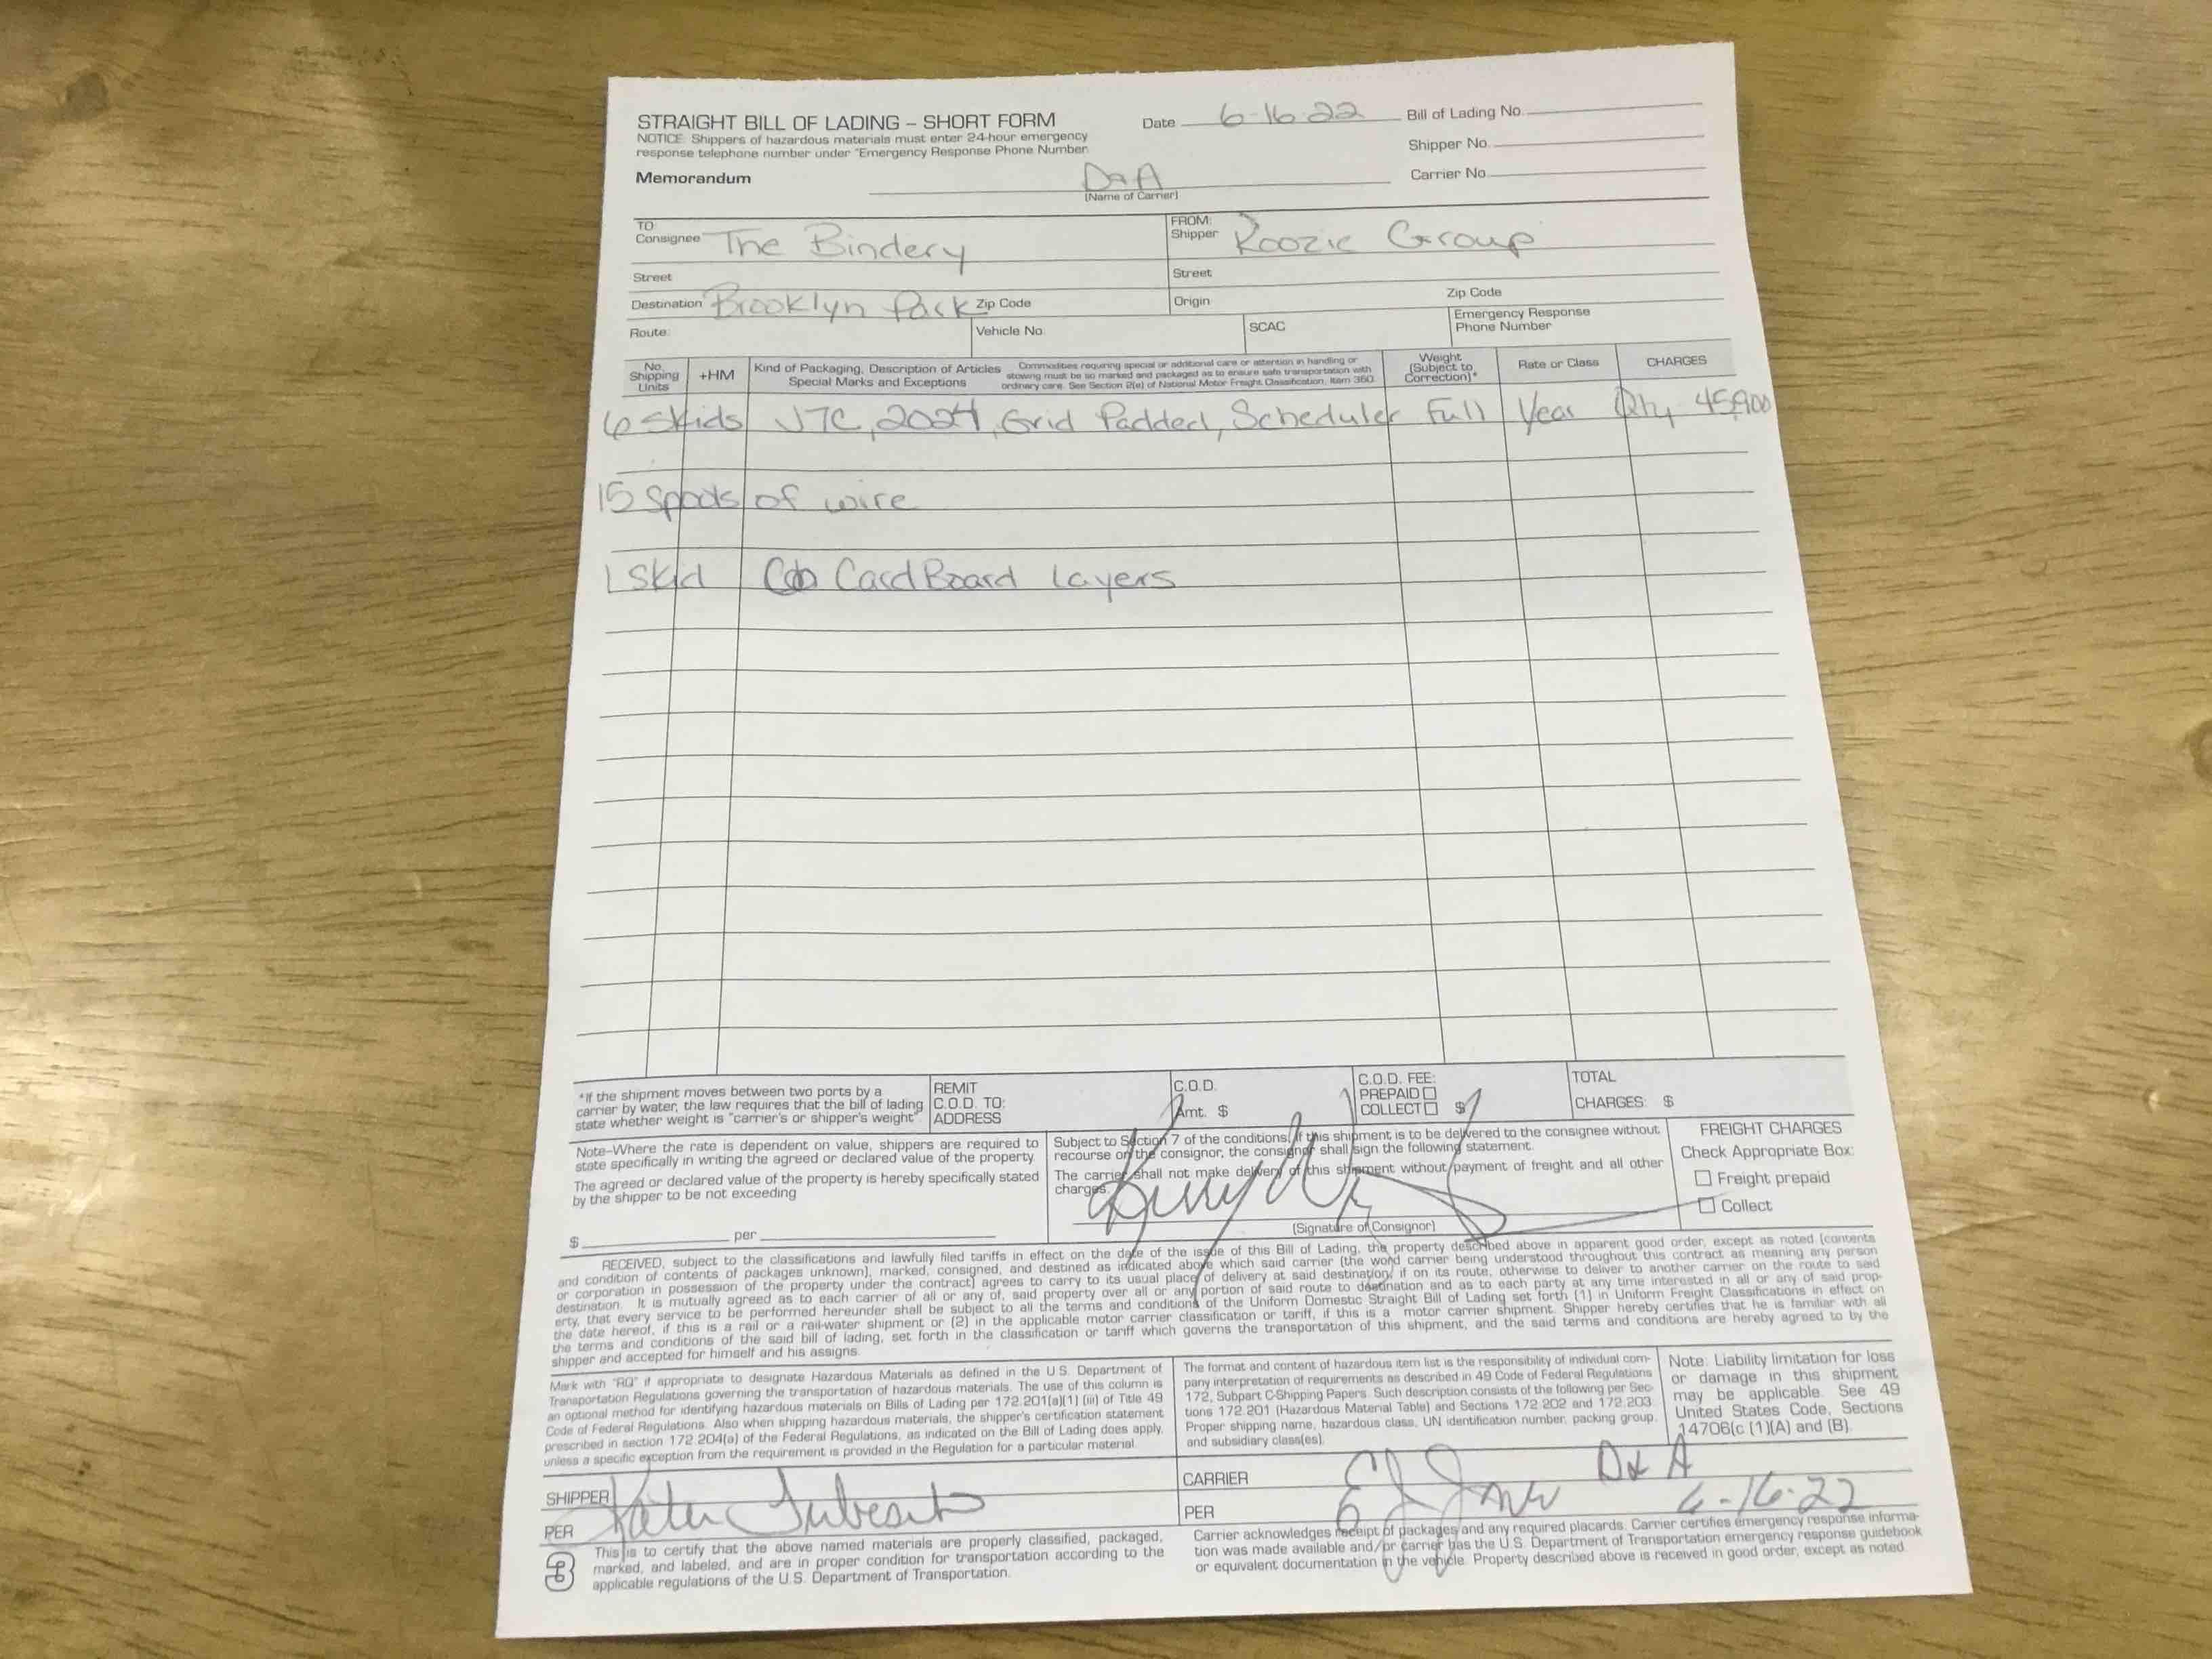 STRAIGHT BILL OF LADING – SHORT FORM
Date 6-16-22
Bill of Lading No.
NOTICE: Shippers of hazardous materials must enter 24-hour emergency
response telephone number under "Emergency Response Phone Number.
Shipper No.
Memorandum
D&A
Carrier No.
(Name of Carrier)
TO:
Consignee The Bindery
FROM:
Shipper Koozie Group
Street
Street
Destination Brooklyn Park Zip Code
Origin
Zip Code
Route:
Vehicle No.
SCAC
Emergency Response
Phone Number
No.
Shipping
Units
+HM
Kind of Packaging, Description of Articles
Special Marks and Exceptions
Commodities requiring special or additional care or attention in handling or
stowing must be so marked and packaged as to ensure safe transportation with
ordinary care. See Section 2(e) of National Motor Freight Classification, Item 360.
Weight
(Subject to
Correction)*
Rate or Class
CHARGES
6 Skids 2024, Grid Padded, Scheduler Full Year Qty 45,900
15 Spools of wire
1 Skid CardBoard Layers
*If the shipment moves between two ports by a
carrier by water, the law requires that the bill of lading
state whether weight is "carrier's or shipper's weight"
REMIT
C.O.D. TO:
ADDRESS
C.O.D.
Amt. $
C.O.D. FEE:
PREPAID
COLLECT $
TOTAL
CHARGES: $
Note–Where the rate is dependent on value, shippers are required to
state specifically in writing the agreed or declared value of the property.
The agreed or declared value of the property is hereby specifically stated
by the shipper to be not exceeding
$ per
Subject to Section 7 of the conditions, if this shipment is to be delivered to the consignee without
recourse on the consignor, the consignor shall sign the following statement.
The carrier shall not make delivery of this shipment without payment of freight and all other
charges.
(Signature of Consignor)
FREIGHT CHARGES
Check Appropriate Box:
Freight prepaid
Collect
RECEIVED, subject to the classifications and lawfully filed tariffs in effect on the date of the issue of this Bill of Lading, the property described above in apparent good order, except as noted (contents
and condition of contents of packages unknown), marked, consigned, and destined as indicated above which said carrier (the word carrier being understood throughout this contract as meaning any person
or corporation in possession of the property under the contract) agrees to carry to its usual place of delivery at said destination, if on its route, otherwise to deliver to another carrier on the route to said
destination. It is mutually agreed as to each carrier of all or any of, said property over all or any portion of said route to destination and as to each party at any time interested in all or any of said prop-
erty, that every service to be performed hereunder shall be subject to all the terms and conditions of the Uniform Domestic Straight Bill of Lading set forth (1) in Uniform Freight Classifications in effect on
the date hereof, if this is a rail or a rail-water shipment or (2) in the applicable motor carrier classification or tariff, if this is a motor carrier shipment. Shipper hereby certifies that he is familiar with all
the terms and conditions of the said bill of lading, set forth in the classification or tariff which governs the transportation of this shipment, and the said terms and conditions are hereby agreed to by the
shipper and accepted for himself and his assigns.
Mark with "RQ" if appropriate to designate Hazardous Materials as defined in the U.S. Department of
Transportation Regulations governing the transportation of hazardous materials. The use of this column is
an optional method for identifying hazardous materials on Bills of Lading per 172.201(a)(1) (iii) of Title 49
Code of Federal Regulations. Also when shipping hazardous materials, the shipper's certification statement
prescribed in section 172.204(a) of the Federal Regulations, as indicated on the Bill of Lading does apply,
unless a specific exception from the requirement is provided in the Regulation for a particular material.
The format and content of hazardous item list is the responsibility of individual com-
pany interpretation of requirements as described in 49 Code of Federal Regulations
172, Subpart C-Shipping Papers. Such description consists of the following per Sec-
tions 172.201 (Hazardous Material Table) and Sections 172.202 and 172.203.
Proper shipping name, hazardous class, UN identification number, packing group,
and subsidiary class(es).
Note: Liability limitation for loss
or damage in this shipment
may be applicable. See 49
United States Code, Sections
14706(c (1)(A) and (B).
SHIPPER
PER
CARRIER D&A
PER 6-16-22
3
This is to certify that the above named materials are properly classified, packaged,
marked, and labeled, and are in proper condition for transportation according to the
applicable regulations of the U.S. Department of Transportation.
Carrier acknowledges receipt of packages and any required placards. Carrier certifies emergency response informa-
tion was made available and/or carrier has the U.S. Department of Transportation emergency response guidebook
or equivalent documentation in the vehicle. Property described above is received in good order, except as noted.